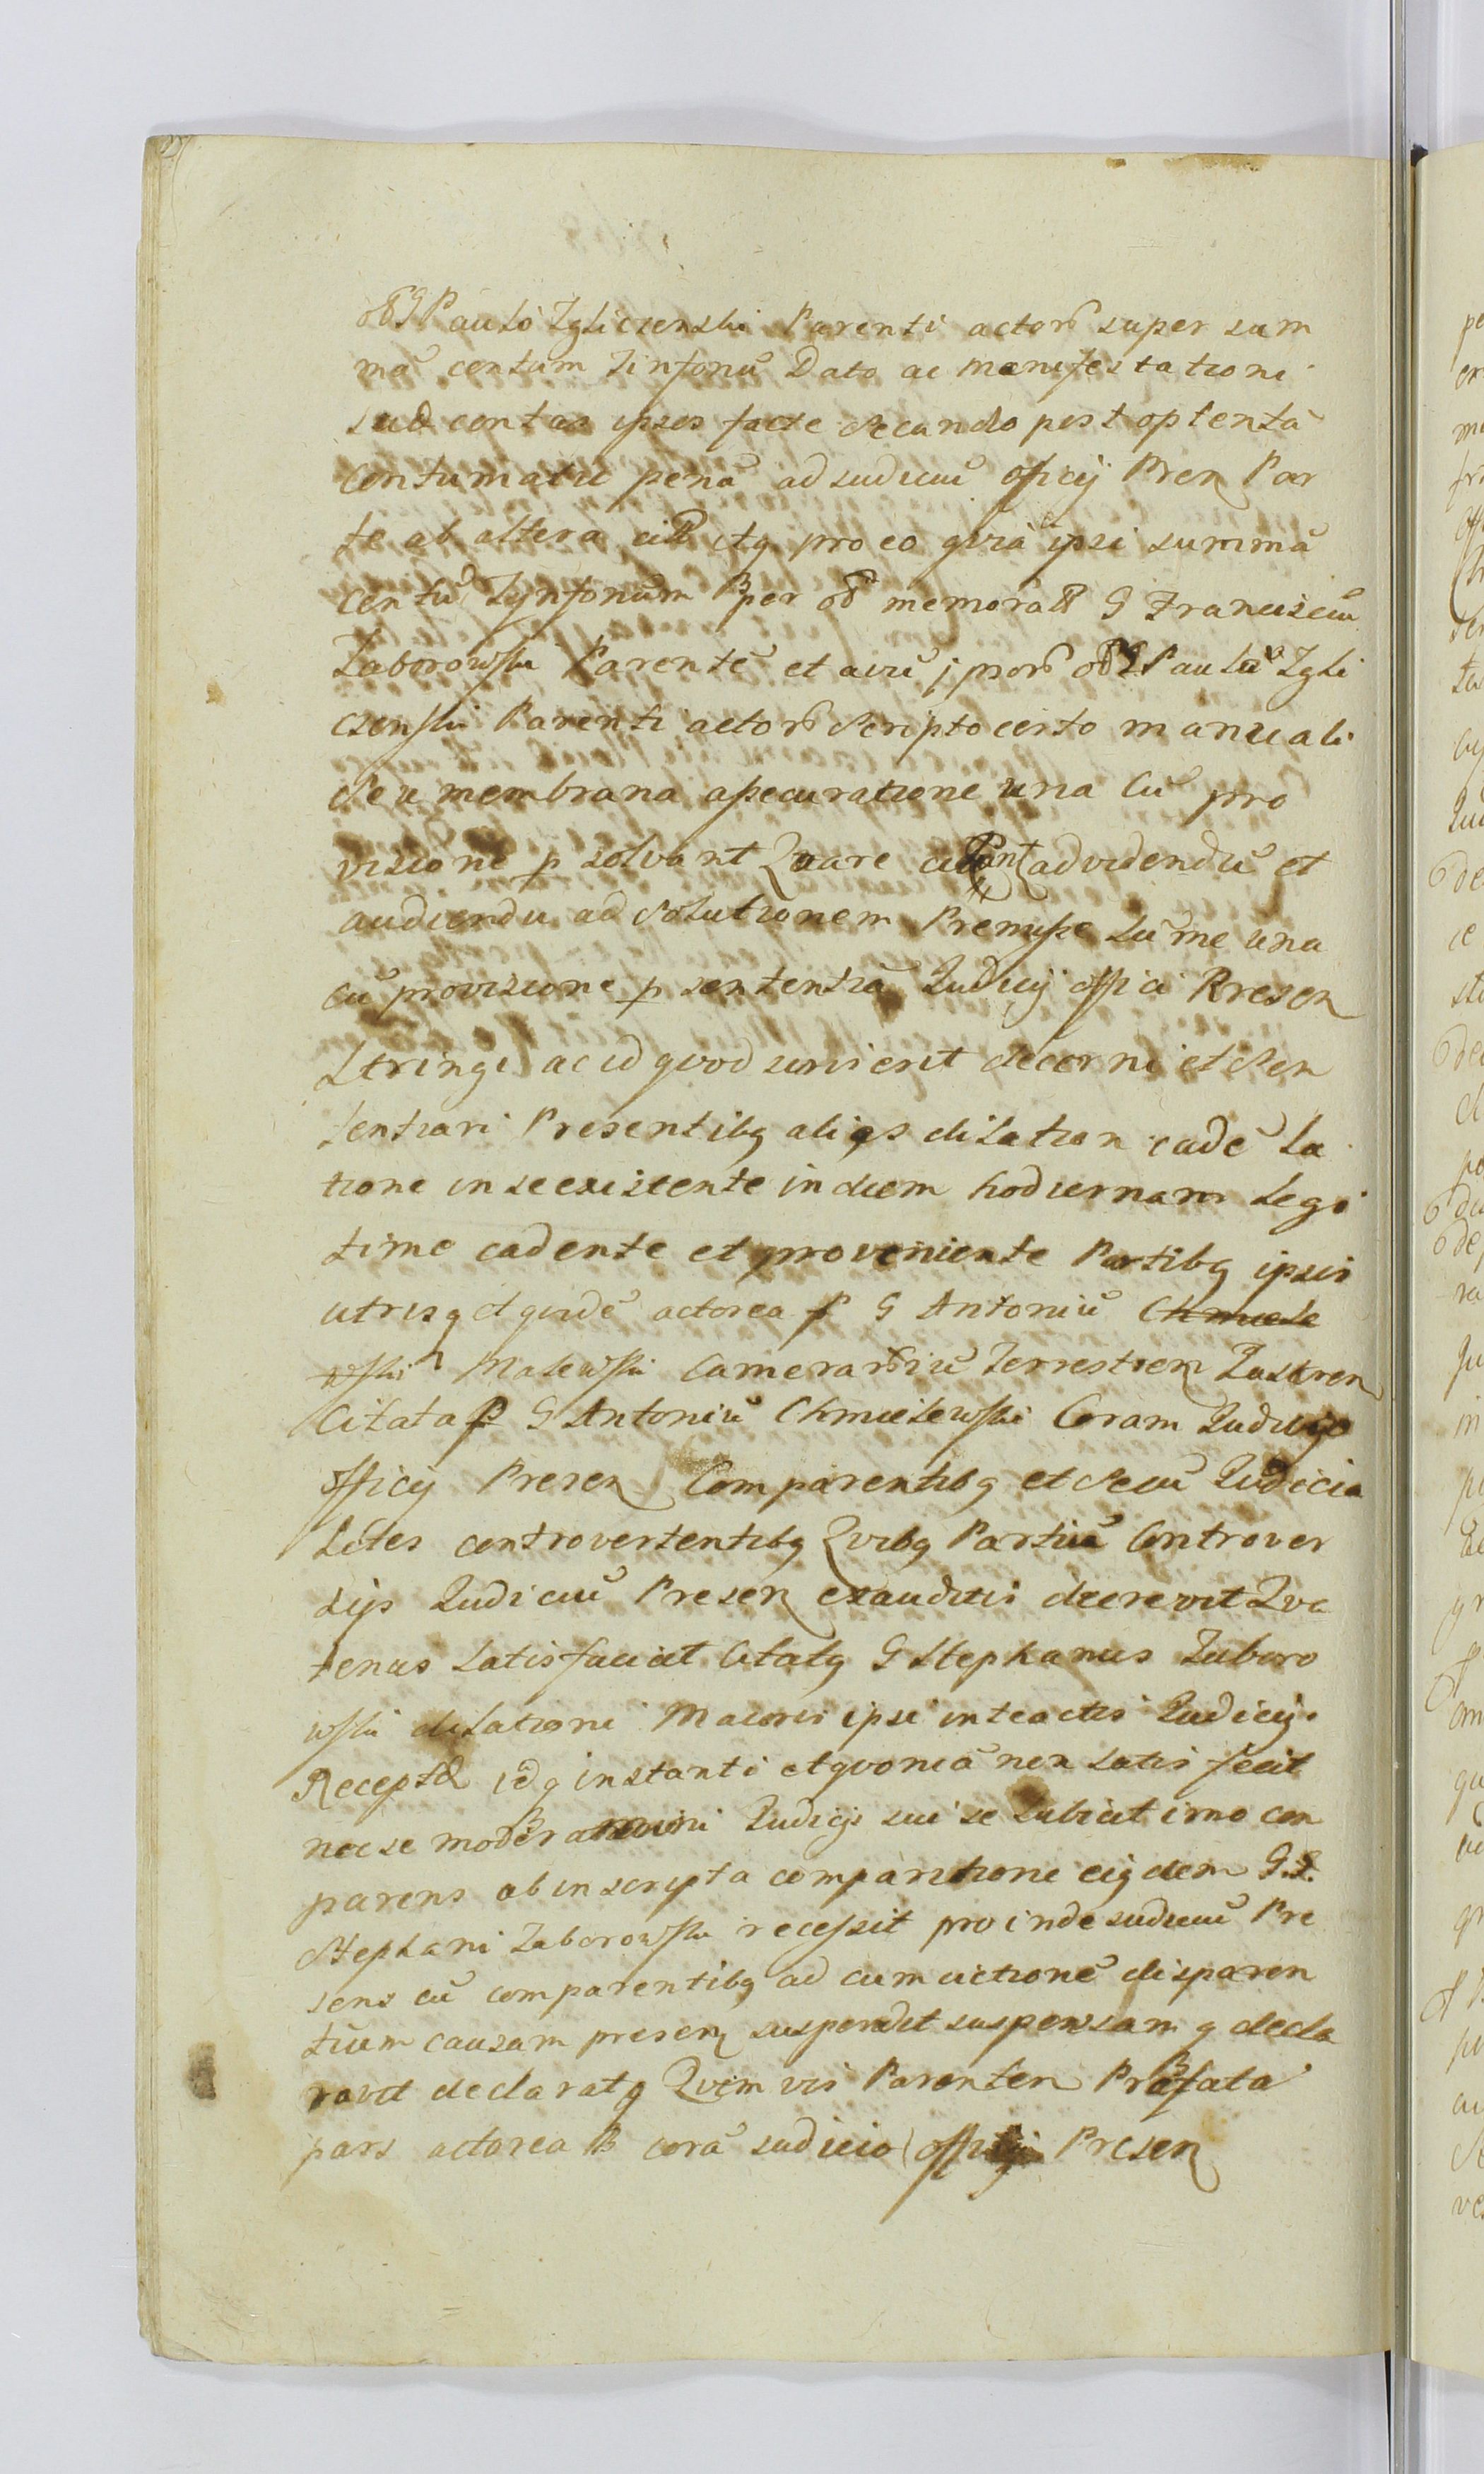 G Paulo Zgliczenski Parenti actorũ super sum
mã centum Tinfonũ Dato ac manifestationi
contra ipsos facte Secundo post optentã
contumatie penã ad Iudiciũ officij Pren Par
te ab altera citt Atq pro eo qviã ipsi summã
centũ Tynfonum per memoratt G Franciscũ
Zaborowski Parentẽ et avũ G Paulũ Zgli
czenski Parenti actorũ Scripto certo manuali
Seu membrana assecuratione una Cũ pro
visione p solvant Qvare cittant ad videndũ et
audiendũ ad Solutionem Premisse sũme una
cũ provisione p sententiã Iudicij offici Presen
stringi ac id qvod iuris erit decerni et Sen
tentiari Presentibq aliqs dilation eadẽ la
tione in se existente in diem hodiernam legi
time cadente et proveniente Partibq ipsis
utrisq et qvidẽ actorea p G Antoniũ Chmiele
wski Malewski Camerariũ Terrestrem
Citata p G Antoniũ Chmielewski Coram Iudicijo
officij Presen Comparentibq et Secũ Iudicia
liter controvertentibq Qvibq Partiũ Controver
sijs Iudiciũ Presen exauditis decrevit Qva
tenus satisfaciat Citatq G Stephanus Zaboro
wski dilationi Maioris ipsi inteactis Iudicij
Recepta idq instanti et qvoniã non satis fecit
nec se moderationi Iudicij sui se subicit imo com
parens ab inscripta comparitione eiqdem G.S.
Stephani Zaborowski recessit proinde iudiciũ Pre
sens cũ comparentibq ad cumuictionẽ disparen
tium causam presen suspendit suspensam q decla
ravit declaratq Parenten Prefata
pars actorea corã iudicio officij Presen